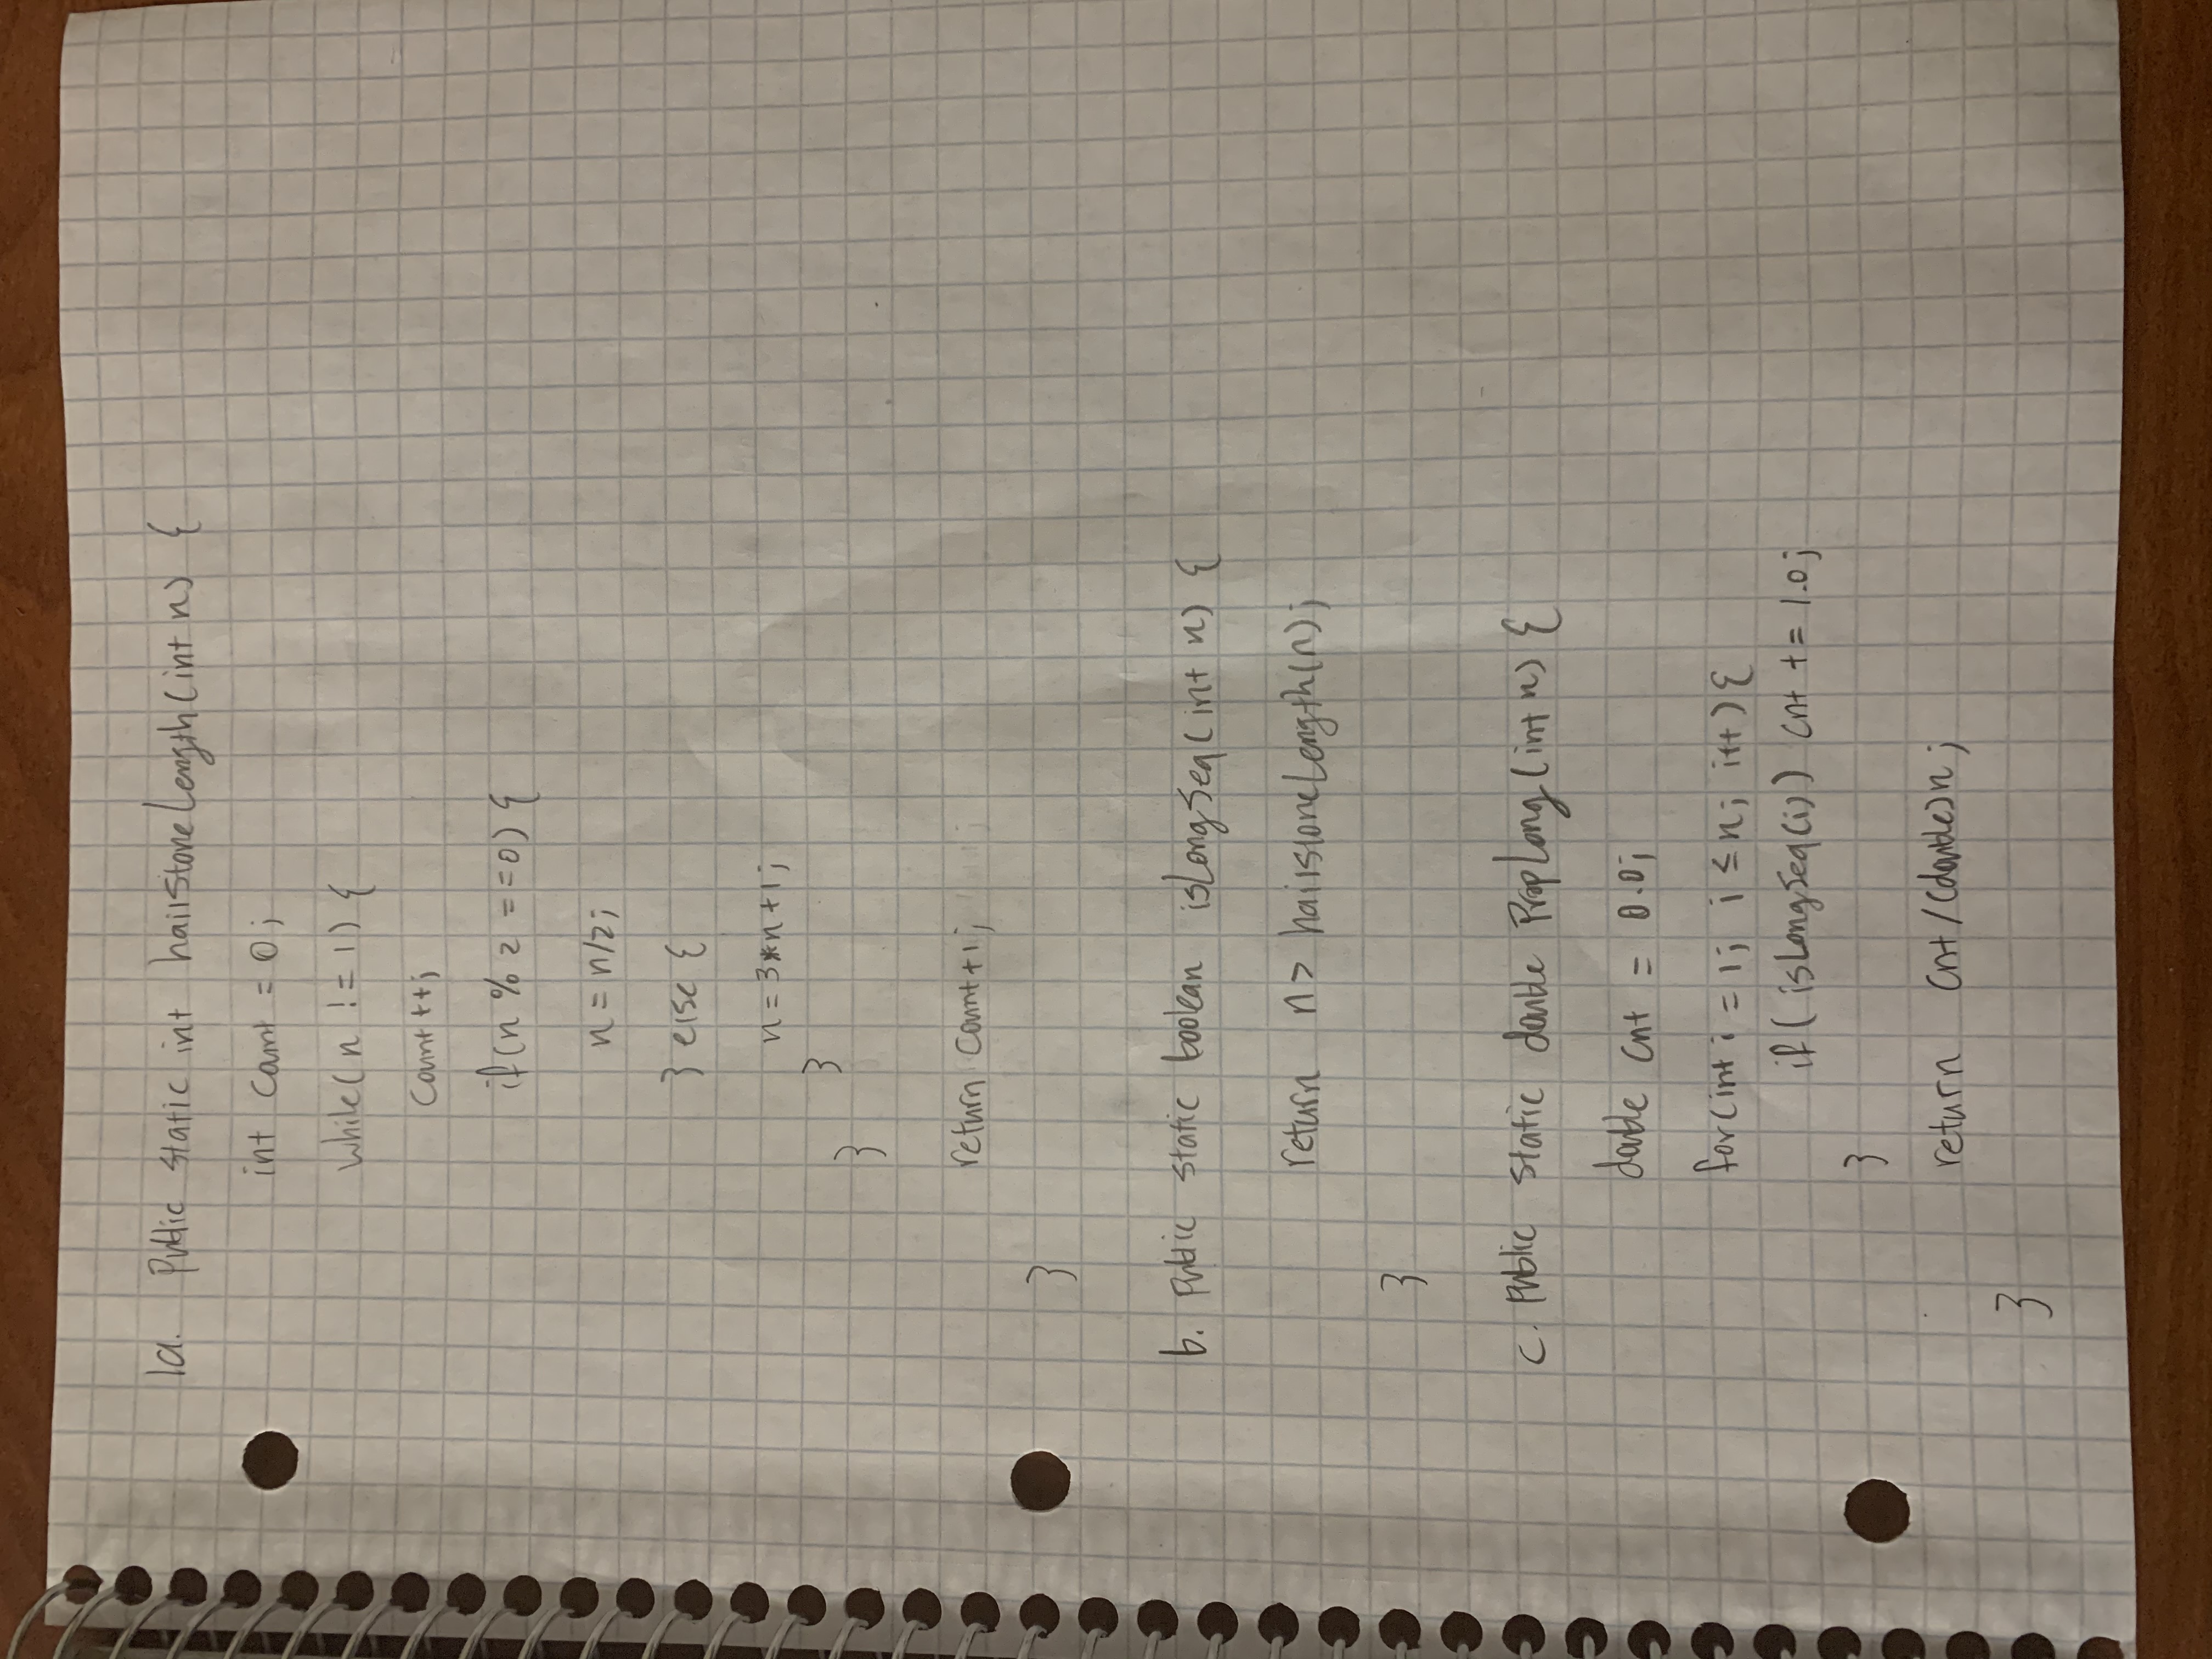 1a. Public static int hailstoneLength(int n) {
int count = 0;
while( n != 1) {
count ++;
if(n % 2 == 0) {
n = n/2;
} else {
n = 3*n+1;
}
}
return count+1;
}
b. Public static boolean isLongSeq(int n) {
return n > hailstoneLength(n);
}
c. Public static double PropLong(int n) {
double cnt = 0.0;
for(int i = 1; i ≤ n; i++){
if( isLongSeq(i)) cnt += 1.0;
}
return cnt/(double)n;
}